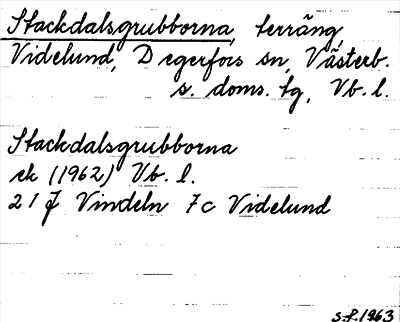 Stackdalsgrubborna, terräng
Videlund, Degerfors sn, Västerb.
s. doms. tg, Vb. l.
Stackdalsgrubborna
ek (1962) Vb. l.
21 J Vindeln 7c Videlund
S.F. 1963